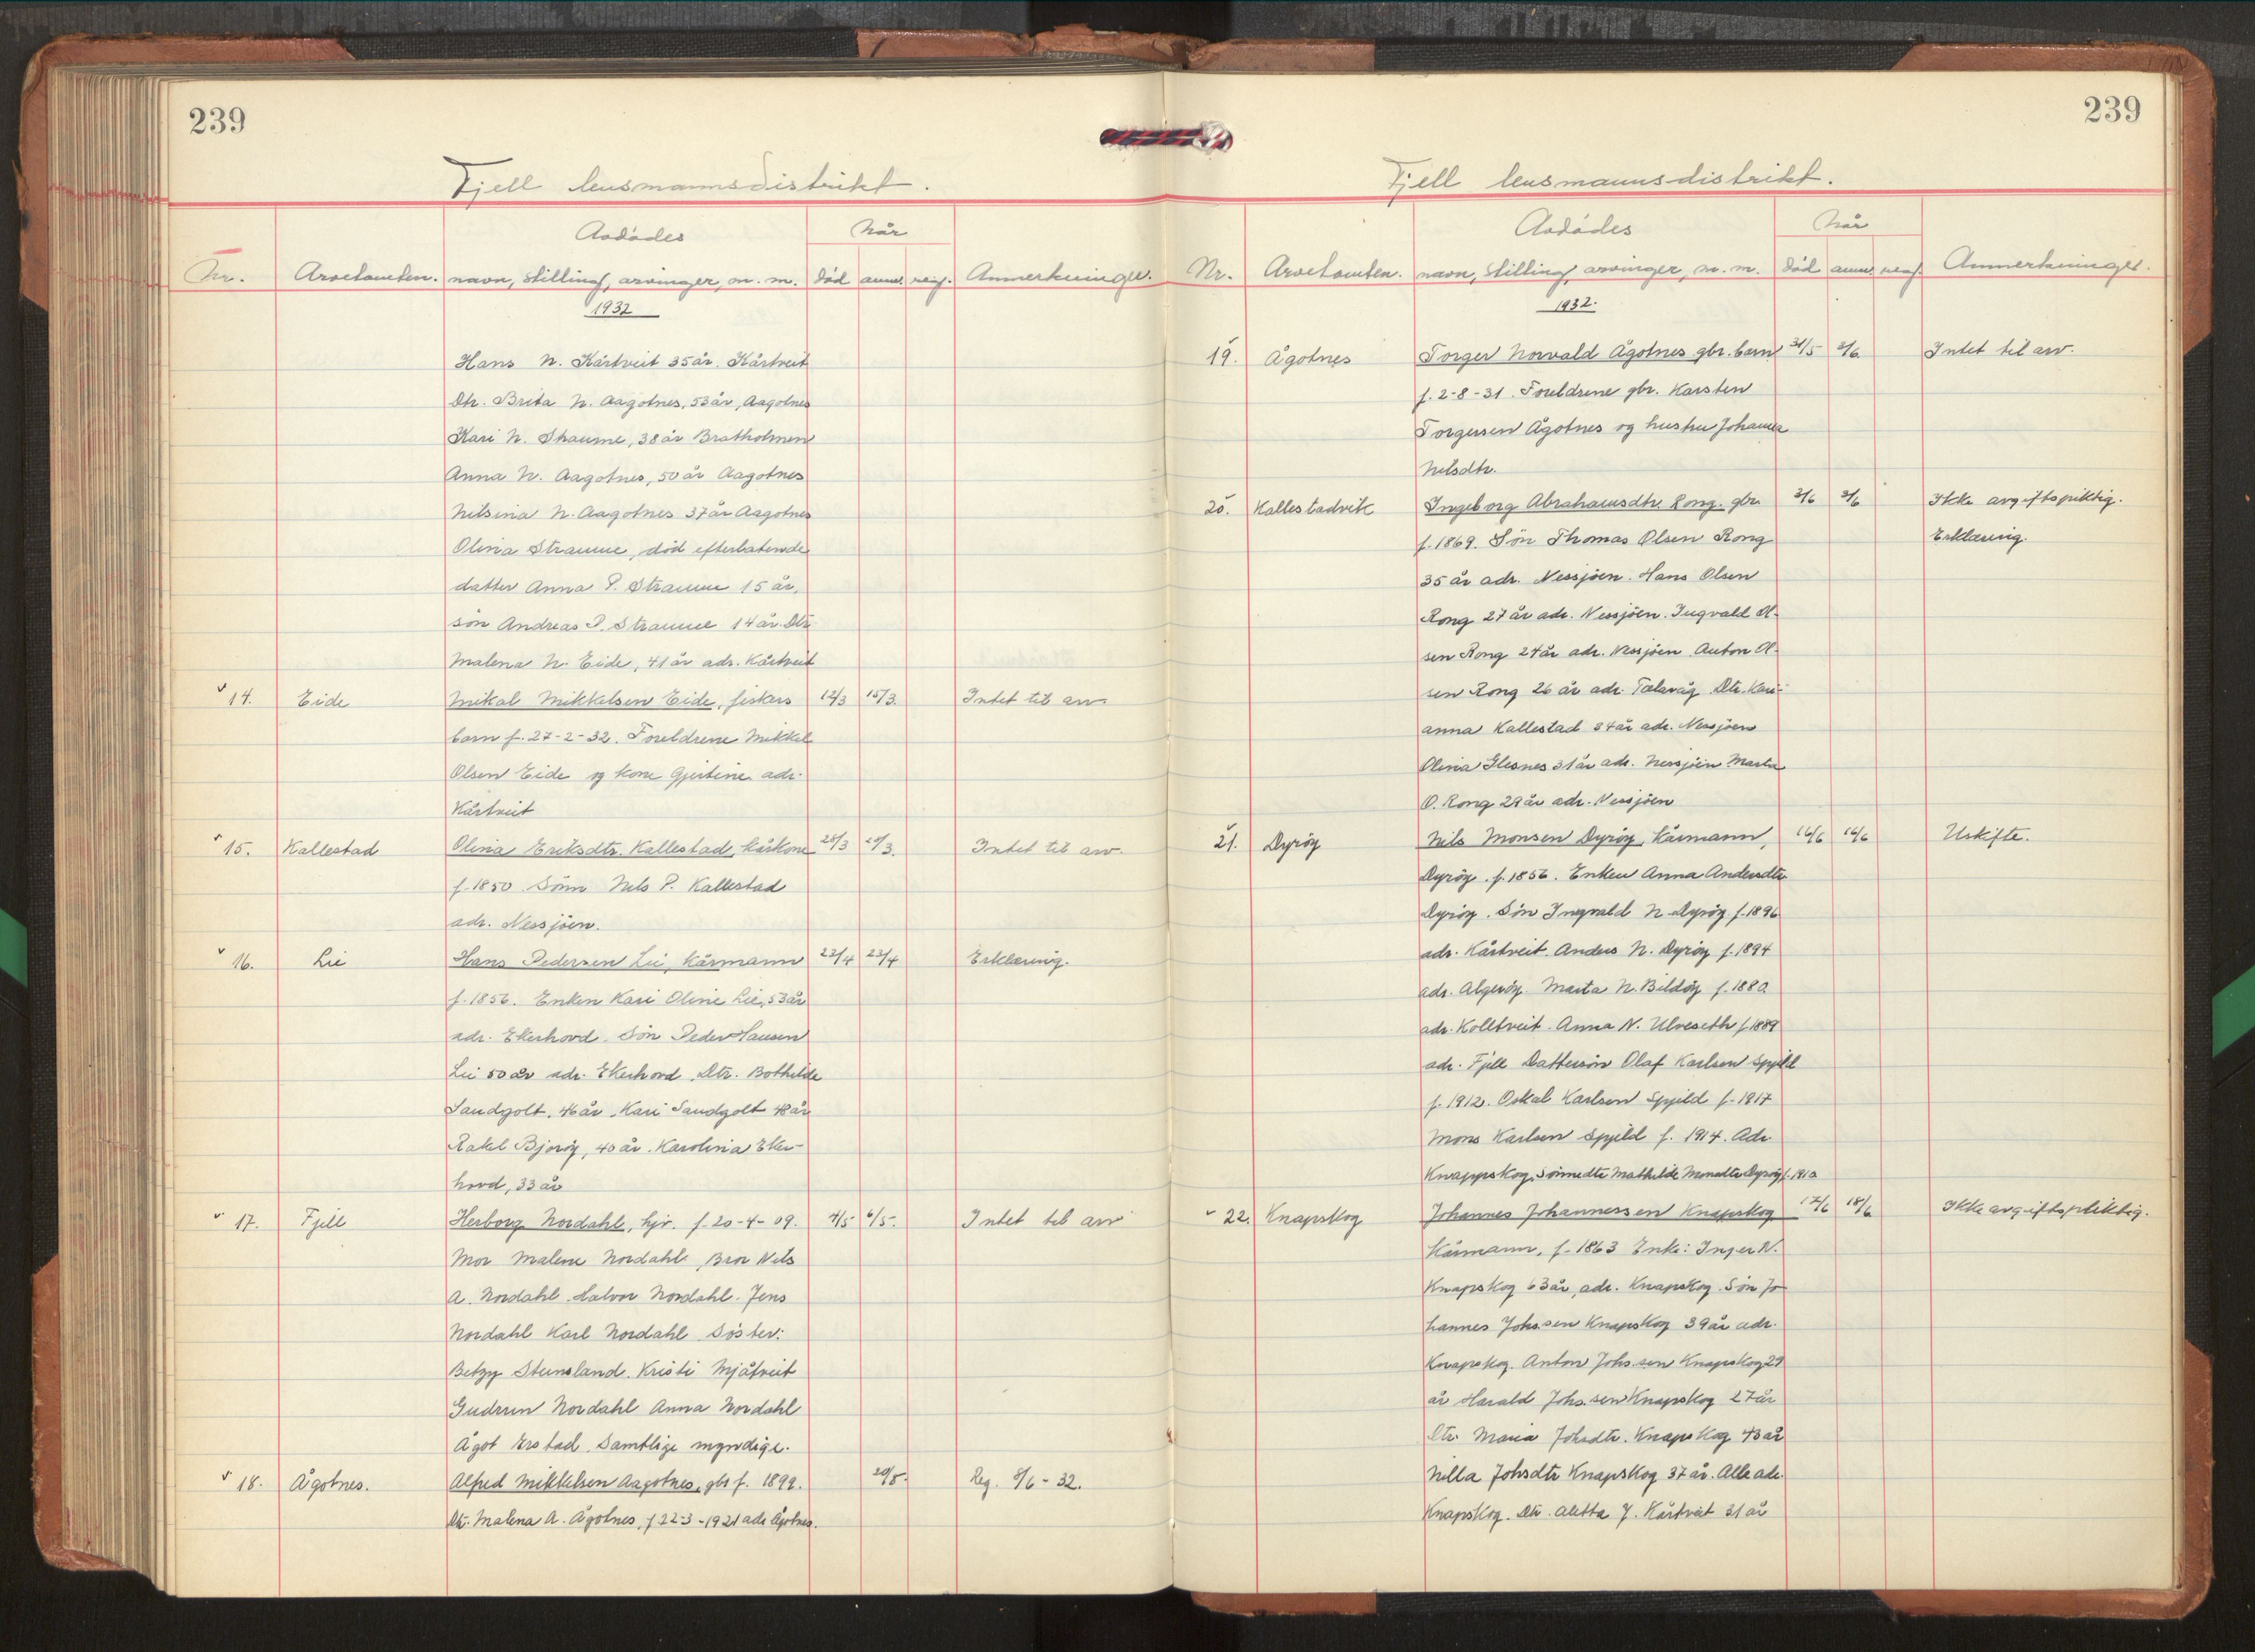 239
Fjell lensmannsdistrikt.
Avdödes
Når
Nr. Arvetomten. navn, stilling, arvinger, m. m. död anm. reg. Anmerkninger.
1932
Hans N. Kårtveit 35 år. Kårtveit
Dtr. Brita N. Aagotnes, 53 år, Aagotnes
Kari N. Skaume, 38 år Bratholmen
Anna N. Aagotnes, 50 år Aagotnes
Nilsina N. Aagotnes 37 år Aagotnes
Olina Straume, död efterlatende
datter Anna P. Straume 15 år,
sön Andreas P. Straume 14 år. Dtr
Malena N. Eide, 41 år adr. Kårtveit
v 14. Eide Mikal Mikkelsen Eide, fiskers 12/3 15/3. Intet til arv.
barn f. 27-2-32. Foreldrene Mikkel
Olsen Eide og kone Gjertine adr.
Kårtveit
v 15. Kallestad Olina Eriksdtr. Kallestad, kårkone 25/3 29/3. Intet til arv.
f. 1850 Sönn Nils P. Kallestad
adr. Nessjöen.
v 16. Lie Hans Pedersen Lie, kårmann 23/4 23/4 Erklæring.
f. 1856. Enken Kari Oline Lie, 53 år
adr. Ekerhovd. Sön Peder Hansen
Lie 50 år adr. Ekerhovd. Dtr. Bothilde
Sandgolt, 46 år, Kari Sandgolt 48 år
Rakel Bjoröy, 40 år. Karolina Eker-
hovd, 33 år
v 17. Fjell Herborg Nordahl, hjv. f. 20-4-09. 4/5 6/5. Intet til arv
Mor Malene Nordahl, Bror Nils
A. Nordahl. Halvor Nordahl. Jens
Nordahl Karl Nordahl Söster:
Betzy Steinsland. Kristi Mjåtveit
Gudrun Nordahl Anna Nordahl
Ågot Erstad. Samtlige myndige.
v 18. Ågotnes. Alfred Mikkelsen Aagotnes, gbr f. 1899. 20/5. Reg. 8/6 - 32.
Dtr. Malena A. Ågotnes, f 22-3-1921 adr Ågotnes.
239
Fjell lensmannsdistrikt.
Avdödes
Når
Nr. Arvetomten. navn, stilling, arvinger, m. m. död anm. reg. Anmerkninger.
1932.
v 19. Ågotnes Torger Norvald Ågotnes gbr. barn 31/5 2/6 Intet til arv.
f. 2-8-31. Foreldrene gbr. Karsten
Torgersen Ågotnes og hustru Johanna
Nilsdtr.
v 20. Kallestadvik Ingeborg Abrahamsdtr. Rong. gbr. 2/6 3/6 Ikke avgiftspiktig.
f. 1869. Sön Thomas Olsen Rong Erklæring.
35 år adr. Nessjöen. Hans Olsen
Rong 27 år adr. Nessjöen. Ingvald Ol-
sen Rong 24 år adr. Nessjöen Anton Ol-
sen Rong 26 år adr. Tælavåg. Dtr. Kari-
anna Kallestad 34 år adr. Nessjöen
Olina Glesnes 31 år adr. Nessjöen Marta
O. Rong 29 år adr. Nessjöen
v 21. Dyröy Nils Monsen Dyröy, kårmann, 16/6 16/6 Uskifte.
Dyröy. f. 1856. Enken Anna Andersdtr.
Dyröy. Sön Ingvald N. Dyröy f. 1896
adr. Kårtveit. Anders N. Dyröy f. 1894
adr. Algeröy. Marta N. Bildöy f. 1880
adr. Kolltveit. Anna N. Ulveseth f. 1889
adr. Fjell Dattersön Olaf Karlsen Spjeld
f. 1912. Oskal Karlsen Spjeld f. 1917
Mons Karlsen Spjeld f. 1914. Adr.
Knappskog. Sönnedtr. Mathilde Monsdtr Dyröy f. 1910
v 22. Knapskog Johannes Johannessen Knapskog 17/6 18/6 Ikke avgiftspliktig.
Kårmann, f. 1863 Enke: Inger N.
Knapskog 63 år, adr. Knapskog. Sön Jo-
hannes Johs.sen Knapskog 39 år adr.
Knapskog. Anton Johs.sen Knapskog 29
år Harald Johs.sen Knapskog 27 år
Dtr. Maria Johsdtr. Knapskog 43 år
Nilla Johsdtr Knapskog 37 år. Alle adr.
Knapskog. Dtr. Alitta J. Kårtveit 31 år